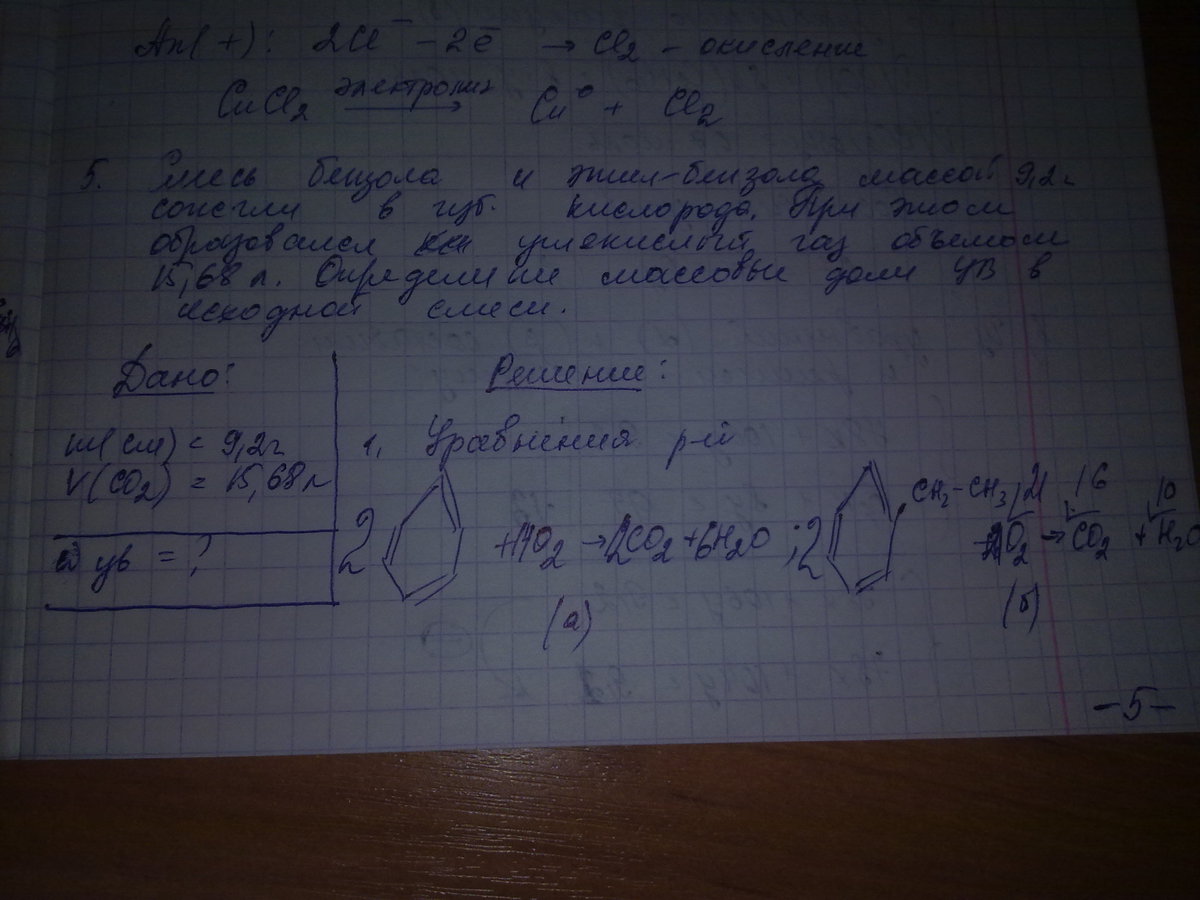 Ап(+): 2Cl⁻ - 2ē → Cl₂ - окисление
CuCl₂ электролиз → Cu⁰ + Cl₂
5. Смесь бензола и этил-бензола массой 9,2г
сожгли в изб. кислорода. При этом
образовался углекислый газ объемом
15,68 л. Определите массовые доли УВ в
исходной смеси.
Дано:
Решение:
m(см) = 9,2г
V(CO₂) = 15,68 л
1. Уравнения р-й
CH₂-CH₃ 21 16 10
2 + O₂ → CO₂ + 6H₂O ; 2 O₂ → CO₂ + H₂O
ω ув = ?
(а) (б)
-5-